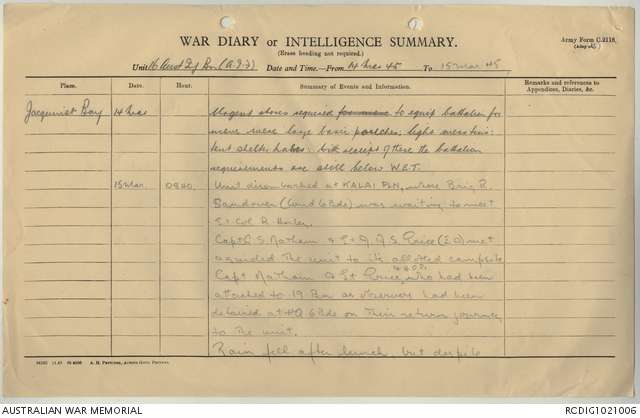 WAR DIARY or INTELLIGENCE SUMMARY.
(Erase heading not required.)
Army Form C.2118.
Unit 16 Aust Inf Bn (A.I.F) Date and Time.—From 14 Mar 45 To 15 Mar 45
Place. Date. Hour. Summary of Events and Information. Remarks and references to Appendices, Diaries, &c.
Jacquinot Bay 14 Mar Urgent stores required to equip battalion for
move were large basic pouches; light
tent shelter halves. With receipt of these the battalion
requirements are still below W.E.T.
15 Mar. Unit disembarked at KALAI PLN, where Brig R.
Sandover (Comd 6 Bde) was waiting to meet
Lt Col R
Capt S Matham & Lt A S (I.O) met
& guided the unit to its allotted campsite
Capt Matham & Lt who had been
attached to 19 Bn as observers had been
detained at HQ 6 Bde on their return journey
to the unit.
Rain fell after lunch, but despite
AUSTRALIAN WAR MEMORIAL
RCDIG1021006